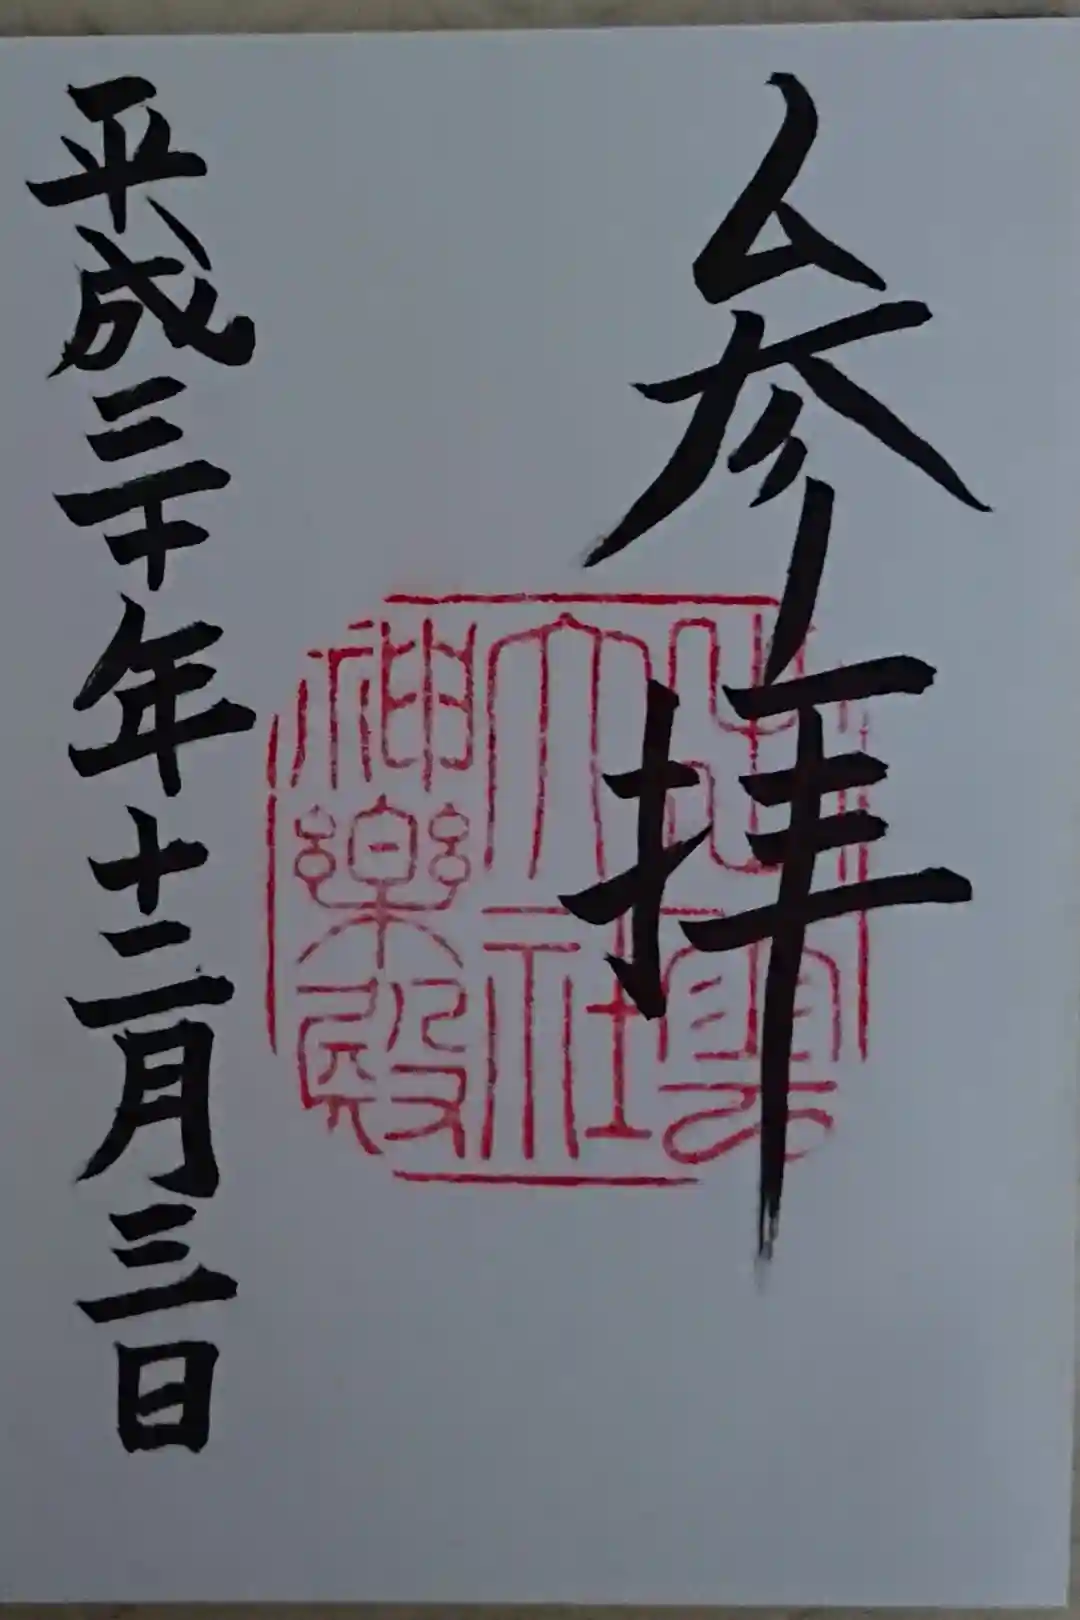 参拝
出雲
大社
神樂殿
平成三十年十二月三日